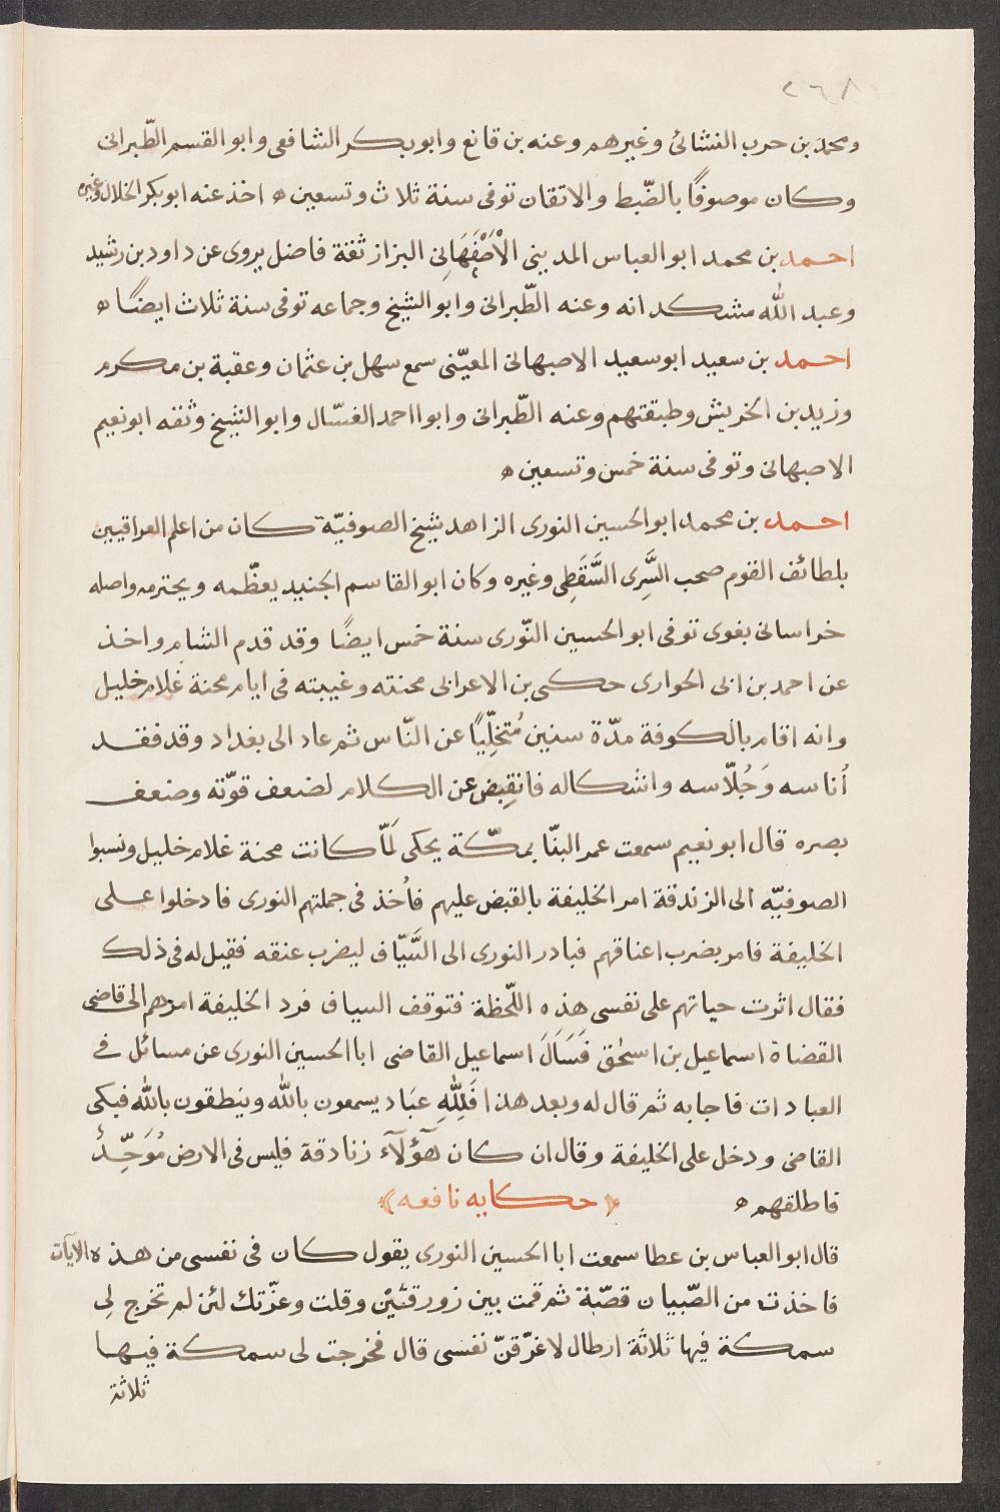 ٢٦٨
ومحمد بن حرب النشائى وغيرهم وعنه بن قانع وابوبكر الشافعى وابو القسم الطّبرانى
وكان موصوفًا بالضّبط والاتقان توفى سنة ثلاث وتسعين ه اخذ عنه ابوبكر الخلال وغيره
احمد بن محمد ابو العباس المدينى الْاَصْفَهَانِى البزاز ثقة فاضل يروى عن داود بن رشيد
وعبد الله مشكدانه وعنه الطّبرانى وابو الشيخ وجماعه توفى سنة ثلاث ايضًا ه
احمد بن سعيد ابو سعيد الاصبهانى المعيّنى سمع سهل بن عثمان وعقبة بن مكرم
وزيد بن الخريش وطبقتهم وعنه الطّبرانى وابو ااحمد العسّال وابو الشيخ وثقه ابو نعيم
الاصبهانى وتوفى سنة خمس وتسعين ه
احمد بن محمد ابو الحسين النورى الزاهد شيخ الصوفيّة كان من اعلم العراقيين
بلطائف القوم صحب السَّرِى السَّقَطِى وغيره وكان ابو القاسم الجنيد يعظّمه ويحترمه واصله
خراسانى بغوى توفى ابو الحسين النّورى سنة خمس ايضًا وقد قدم الشام واخذ
عن احمد بن ابى الحوارى حكى بن الاعرابى محنته وغيبته فى ايام محنة غلام خليل
وانه اقام بالكوفة مدّة سنين مُتخلِّيًا عن النّاس ثم عاد الى بغداد وقد فقد
أناسه وَجُلّاسه واشكاله فانقبِض عن الكلام لضعف قوّته وضعف
بصره قال ابو نعيم سمعت عمر البنّا بمكّة يحكى لَمّا كانت محنة غلام خليل ونسبوا
الصوفيّه الى الزندقة امر الخليفة بالقبض عليهم فأخذ فى جملتهم النورى فادخلوا على
الخليفة فامر بضرب اعناقهم فبادر النورى الى السَّيّاف ليضرب عنقه فقيل له فى ذلك
فقال اثرت حياتهم على نفسى هذه اللّحظة فتوقف السياف فرد الخليفة امرهم الى قاضى
القضاة اسماعيل بن اسحٰق فَسَالَ اسماعيل القاضى ابا الحسين النورى عن مسائل فى
العبادات فاجابه ثم قال له وبعد هذا فَلِلّٰهِ عبَاد يسمعون بالله وينطقون بالله فبكى
القاضى ودخل على الخليفة وقال ان كان هَؤلآء زنادقة فليس فى الارض مُوَحِّدٌ
فاطلقهم ه ﴿ حكايه نافعه ﴾
قال ابو العباس بن عطا سمعت ابا الحسين النورى يقول كان فى نفسى من هذه الآيات
فاخذت من الصّبيان قصّبة ثم قمت بين زورقَيْن وقلت وعزّتك لئن لم تخرج لى
سمكة فيها ثلاثة ارطال لاغرّقنّ نفسى قال فخرجت لى سمكة فيها
ثلاثة